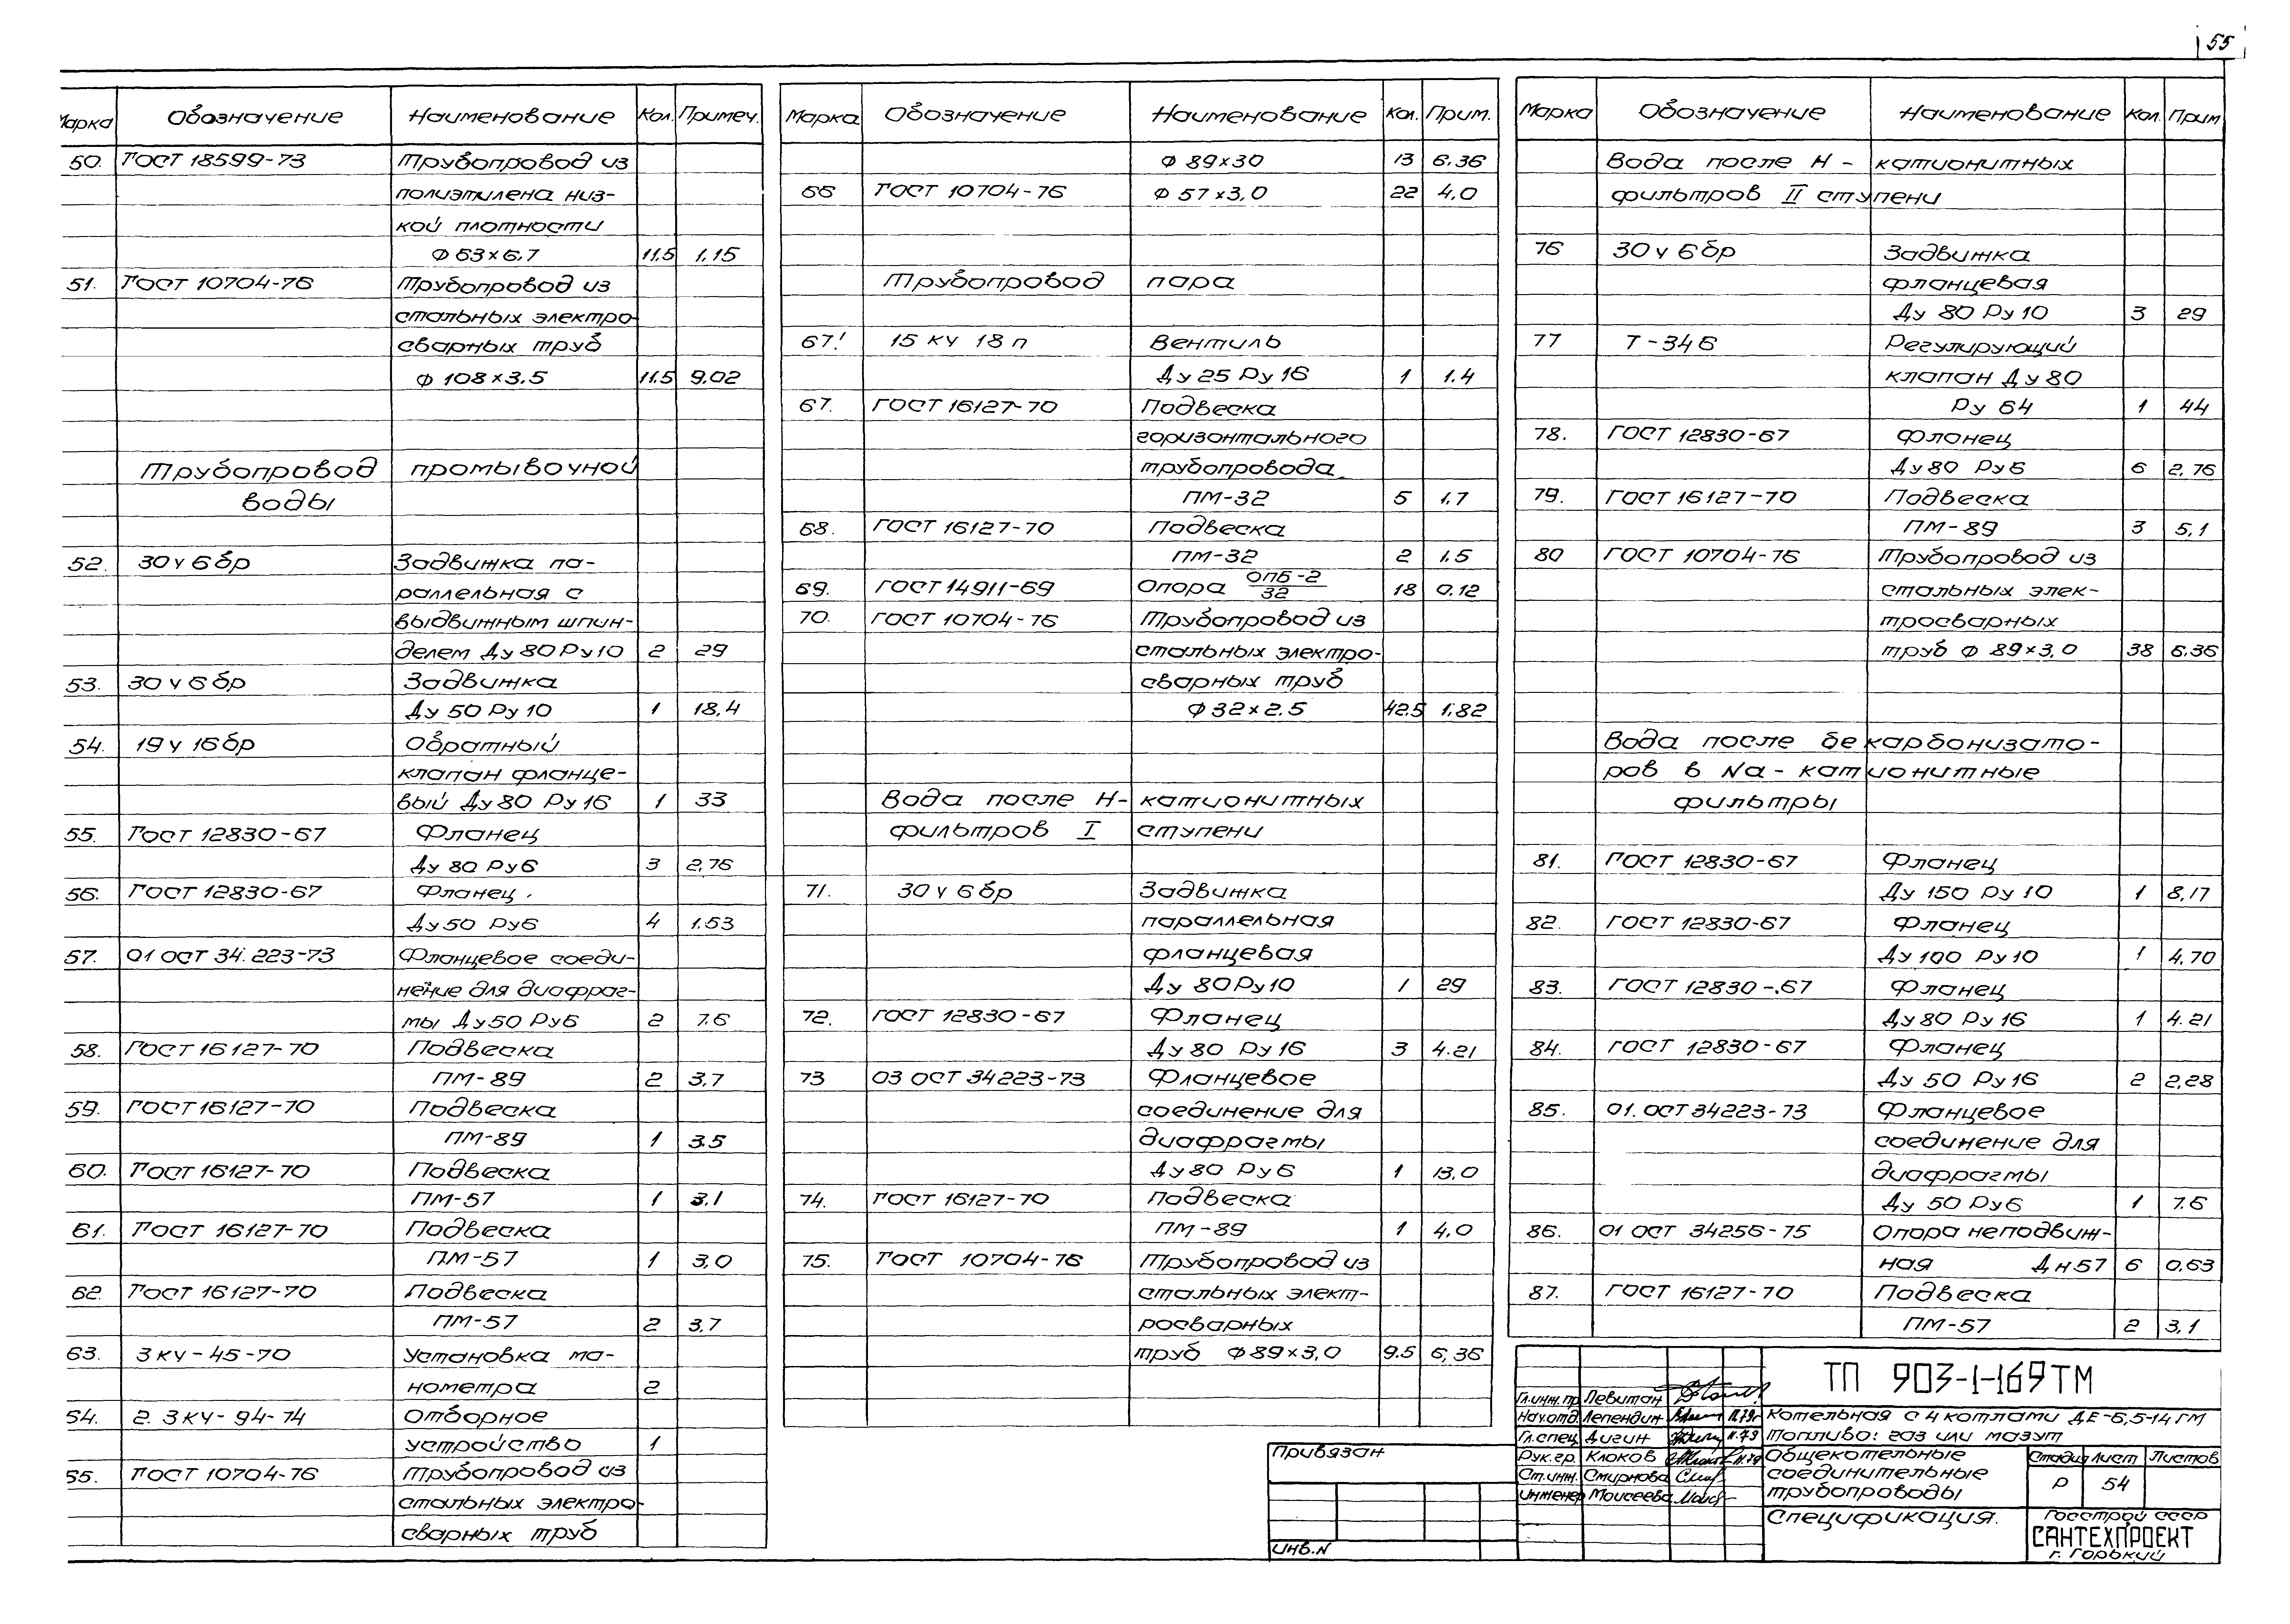 55
Марка Обозначение Наименование Кол. Примеч.
50. ГОСТ 18599-73 Трубопровод из
полиэтилена низ-
кой плотности
Ф 63×6,7 11.5 1,15
51. ГОСТ 10704-76 Трубопровод из
стальных электро-
сварных труб
Ф 108×3.5 11.5 9,02
Трубопровод промывочной
воды
52. 30ч6бр Задвижка па-
раллельная с
выдвижным шпин-
делем Ду 80 Ру10 2 29
53. 30ч6бр Задвижка
Ду 50 Ру 10 1 18,4
54. 19ч16бр Обратный
клапан фланце-
вый Ду 80 Ру 16 1 33
55. ГОСТ 12830-67 Фланец
Ду 80 Ру6 3 2,76
56. ГОСТ 12830-67 Фланец
Ду50 Ру6 4 1.53
57. 01 ОСТ 34.223-73 Фланцевое соеди-
нение для диафраг-
мы Ду50 Ру6 2 7.6
58. ГОСТ 16127-70 Подвеска
ПМ-89 2 3,7
59. ГОСТ 16127-70 Подвеска
ПМ-89 1 3.5
60. ГОСТ 16127-70 Подвеска
ПМ-57 1 3.1
61. ГОСТ 16127-70 Подвеска
ПМ-57 1 3,0
62. ГОСТ 16127-70 Подвеска
ПМ-57 2 3,7
63. 3 КЧ-45-70 Установка ма-
нометра 2
64. 2. 3 КЧ-94-74 Отборное
устройство 1
65. ГОСТ 10704-76 Трубопровод из
стальных электро-
сварных труб
Марка Обозначение Наименование Кол. Прим.
Ф 89×30 13 6.36
66 ГОСТ 10704-76 Ф 57×3,0 22 4,0
Трубопровод пара
67! 15 кч 18 п Вентиль
Ду 25 Ру 16 1 1.4
67. ГОСТ 16127-70 Подвеска
горизонтального
трубопровода
ПМ-32 5 1.7
68. ГОСТ 16127-70 Подвеска
ПМ-32 2 1.5
69. ГОСТ 14911-69 Опора ОПБ-2/32 18 0.12
70. ГОСТ 10704-76 Трубопровод из
стальных электро-
сварных труб
Ф 32×2.5 42.5 1.82
Вода после Н-катионитных
фильтров I ступени
71. 30ч6бр Задвижка
параллельная
фланцевая
Ду 80 Ру10 1 29
72. ГОСТ 12830-67 Фланец
Ду 80 Ру 16 3 4.21
73 03 ОСТ 34223-73 Фланцевое
соединение для
диафрагмы
Ду80 Ру6 1 13,0
74. ГОСТ 16127-70 Подвеска
ПМ-89 1 4,0
75. ГОСТ 10704-76 Трубопровод из
стальных элект-
росварных
труб Ф89×3,0 9.5 6,36
Марка Обозначение Наименование Кол. Прим
Вода после Н-катионитных
фильтров II ступени
76 30ч6бр Задвижка
фланцевая
Ду 80 Ру 10 3 29
77 Т-34б Регулирующий
клапан Ду 80
Ру 64 1 44
78. ГОСТ 12830-67 Фланец
Ду80 Ру6 6 2,76
79. ГОСТ 16127-70 Подвеска
ПМ-89 3 5,1
80 ГОСТ 10704-76 Трубопровод из
стальных элек-
тросварных
труб Ф 89×3,0 38 6,36
Вода после декарбонизато-
ров в Na-катионитные
фильтры
81. ГОСТ 12830-67 Фланец
Ду 150 Ру 10 1 8,17
82. ГОСТ 12830-67 Фланец
Ду 100 Ру10 1 4,70
83. ГОСТ 12830-67 Фланец
Ду80 Ру 16 1 4.21
84. ГОСТ 12830-67 Фланец
Ду 50 Ру 16 2 2,28
85. 01.ОСТ 34223-73 Фланцевое
соединение для
диафрагмы
Ду 50 Ру6 1 7.6
86. 01 ОСТ 34256-75 Опора неподвиж-
ная Дн57 6 0,63
87. ГОСТ 16127-70 Подвеска
ПМ-57 2 3,1
Привязан
Инв.N
ТП 903-1-169ТМ
Гл.инж.пр Левитан
Нач.отд Лепендин 11.79г
Гл.спец. Дигин 11.79
Рук.гр. Клоков 11.79
Ст.инж. Смирнова
Инженер Моисеева
Котельная с 4 котлами ДЕ-6,5-14ГМ
Топливо: газ или мазут
Общекотельные
соединительные
трубопроводы
Стадия Лист Листов
Р 54
Спецификация.
Госстрой СССР
САНТЕХПРОЕКТ
г. Горький